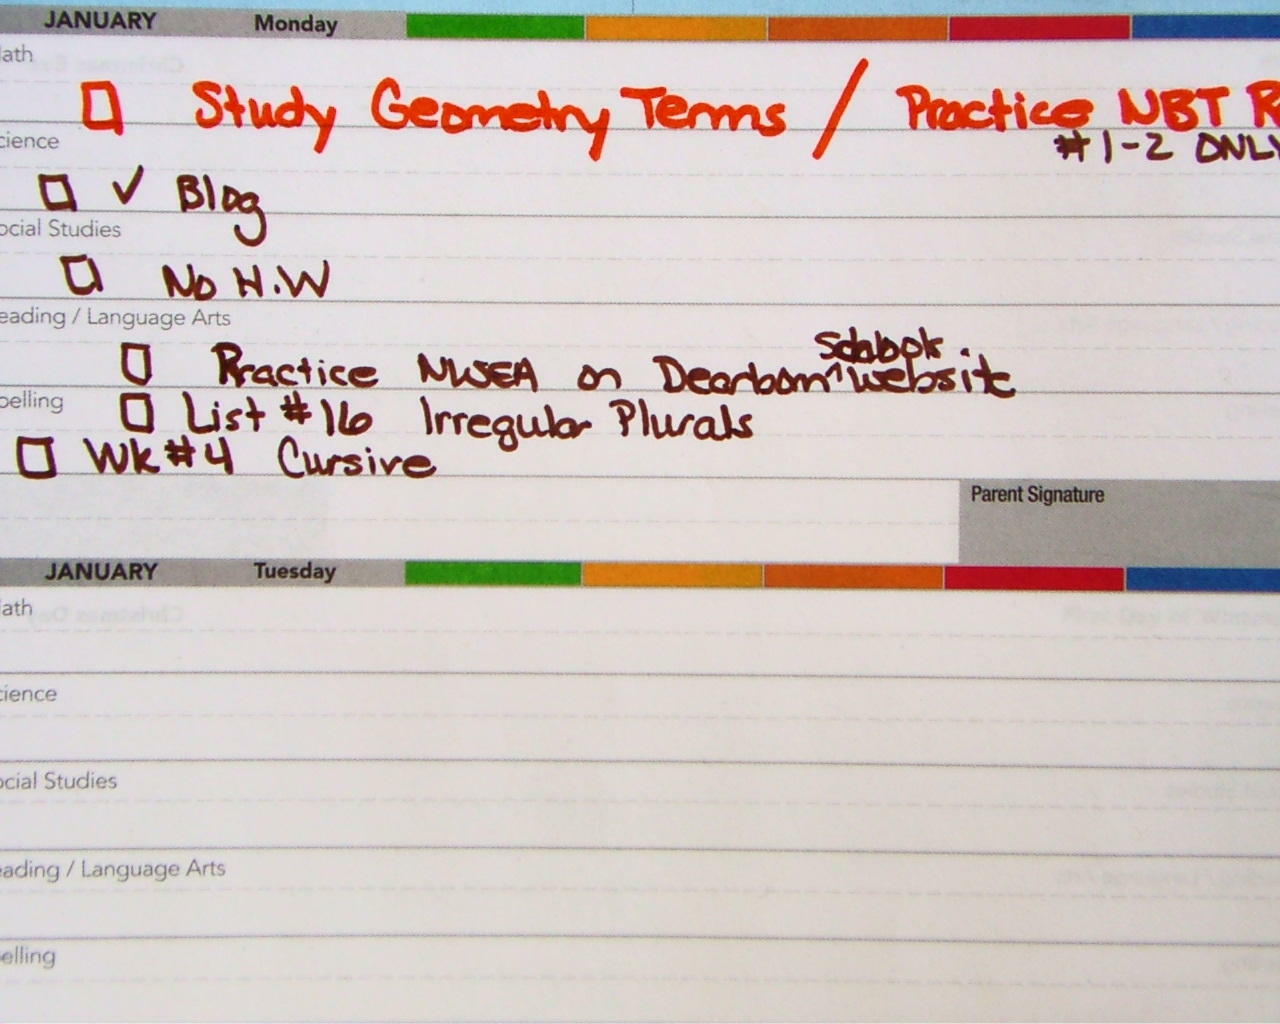 JANUARY Monday
ath
Study Geometry Terms / Practice NBT R
cience
#1-2 ONLY
✓ Blog
ocial Studies
No H.W
eading / Language Arts
Practice NWEA on Dearborn ^ website
pelling
List #16 Irregular Plurals
Wk #4 Cursive
Parent Signature
JANUARY Tuesday
ath
cience
ocial Studies
eading / Language Arts
elling